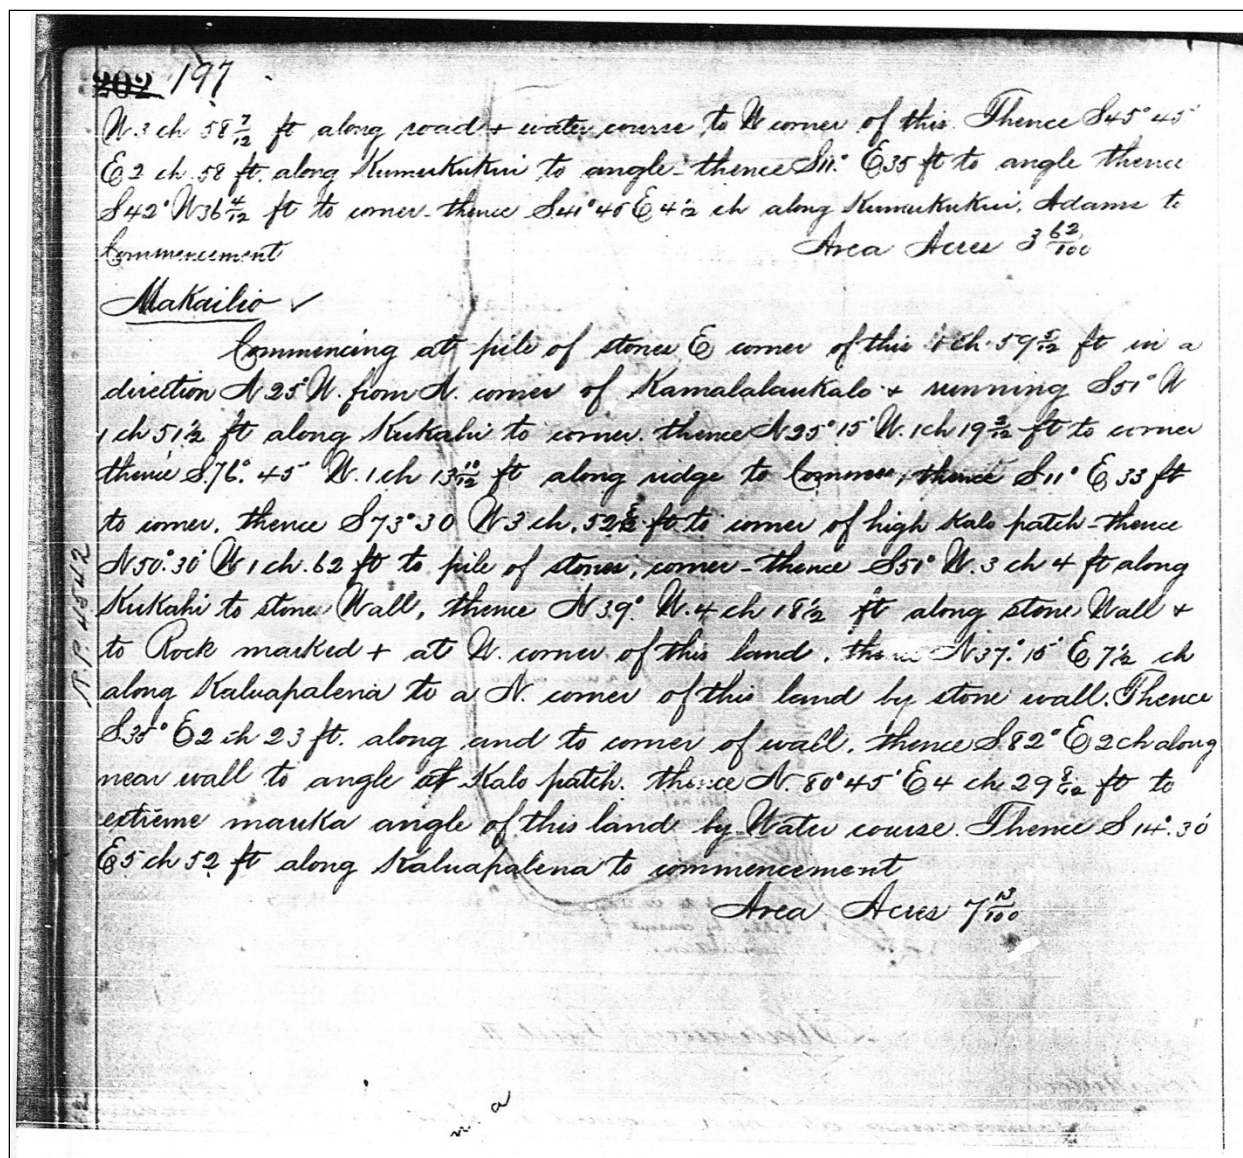 202 197
W. 3 ch 58 7/12 ft along road + water course to W corner of this. Thence S45° 45'
E 2 ch. 58 ft. along Kumukukui to angle - thence S11° E35 ft to angle thence
S42° W36 4/12 ft to corner - thence S41° 45 E 4 1/2 ch along Kumukukui, Adams to
Commencement
Area Acres 3 62/100
Makailio ✓
Commencing at pile of stones E corner of this 1 ch. 59 5/12 ft in a
direction N 25 W. from N. corner of Kamalalaukalo + running S51° W
1 ch 51 1/2 ft along Kukahi to corner. thence N25° 15' W. 1 ch 19 3/12 ft to corner
thence S.76.° 45' W. 1 ch 13 10/12 ft along ridge to thence S11° E 33 ft
to corner, thence S73° 30 W 3 ch. 52 ft to corner of high Kalo patch - thence
N50.° 30' W 1 ch. 62 ft to pile of stones, corner - thence S51° W. 3 ch 4 ft along
Kukahi to stone Wall, thence N 39° W. 4 ch 18 1/2 ft along stone Wall +
to Rock marked + at W. corner of this land. thence N37.° 15' E 7 1/2 ch
along Kaluapalena to a N. corner of this land by stone wall. Thence
S.35° E2 ch 23 ft. along and to corner of wall. thence S.82° E 2 ch along
near wall to angle of Kalo patch. thence N. 80° 45' E 4 ch 29 8/12 ft to
extreme mauka angle of this land by Water course. Thence S 14°. 30'
E 5 ch 52 ft along Kaluapalena to commencement
Area Acres 7
R.P. 4542